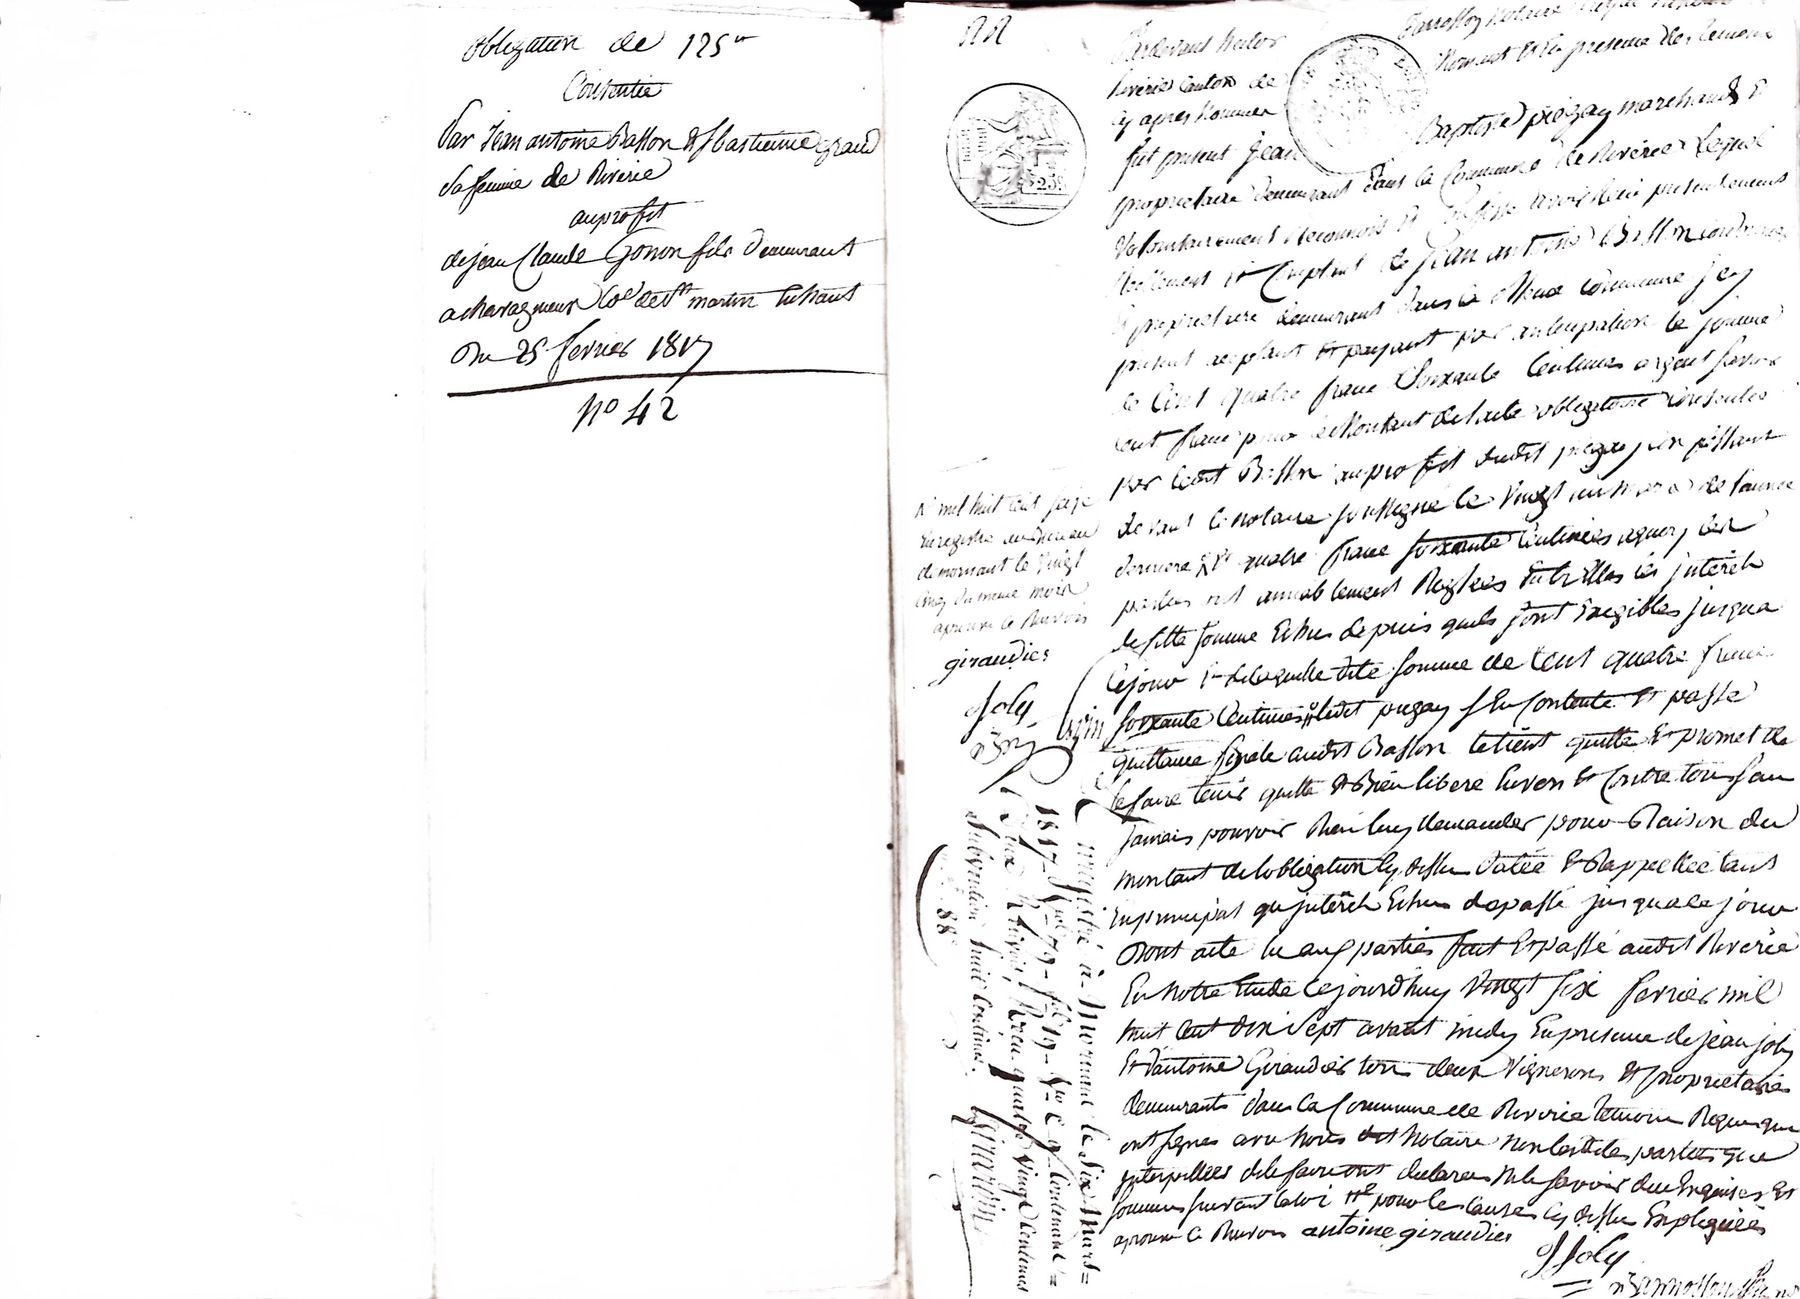 obligation de 125 fr
Consentie
Par Jean antoine Basson & Sbastienne giraud
sa femme de Riverie
au profit
de jean Claude Gonon fils demeurant
a chavagneux Coe de st martin
Du 25 fevrier 1817
No 42
Pardevant
notaire
nommés
Riverie canton de Mornant & En presence des temoins
cy apres Nommes
fut present Jean Baptiste piégay marchand &
proprietaire demeurant dans la Commune de Riverie Lequel
Volontairement Reconnoit & Confesse avoir Recu presentement
Reellement Et Comptant de Jean antoine Basson
& proprietaire demeurant dans la Meme Commune Jcy
present acceptant Et payant par anticipation la somme
de Cent quatre franc Soixante Centimes argent savoir
Cent franc pour le Montant de lacte obligatoire Consentie
par ledit Basson au profit dudit piégay
devant le Notaire soussigné le Vingt un Mars de l'année
derniere Et quatre franc soixante Centimes aquoy les
parties ont amiablement Reglées Entr'Elles les jnterêts
de sette somme Echus depuis quils sont Exegibles jusqua
Cejour Et de laquelle dite somme de Cent quatre franc
soixante Centimes ledit piegay sEn Contente Et passe
quittance finale audit Basson le tient quitte Et promet de
le faire tenir quitte & Bien libere Envers & Contre tous sans
jamais pouvoir Rien luy demander pour Raison du
montant de lobligation Cy dessus datée & Rappellée tant
En principal qu jnterêts Echus depassé jusqua ce jour
Dont acte lu aux parties fait Et passé audit Riverie
En Notre Etude Cejourdhuy Vingt six fevrier mil
huit cent dix sept avant midy En presence de jean joly
Et d'antoine Giraudier tous deux Vignerons & proprietaires
demeurants dans la Commune de Riverie temoins Requis qui
ont signés avec Nous dit Notaire non lesdites parties que
jnterpellées de le faire ont declarer Ne le savoir du Enquises Et
sommes suivant la loi # pour les Causes Cy dessus Expliquées
aprouvé Ce Renvoi antoine giraudier
J Joly
mil huit cent seize
Enregistré au Bureau
de mornant le Vingt
Cinq du meme mois
aprouvé le Renvoi
giraudier
Joly
Enregistré à Mornant le Six Mars
1817 fol 79 Contenant
deux Renvois, Recu quatre Vingt Centimes
subvention huit centimes.
88
Girardin